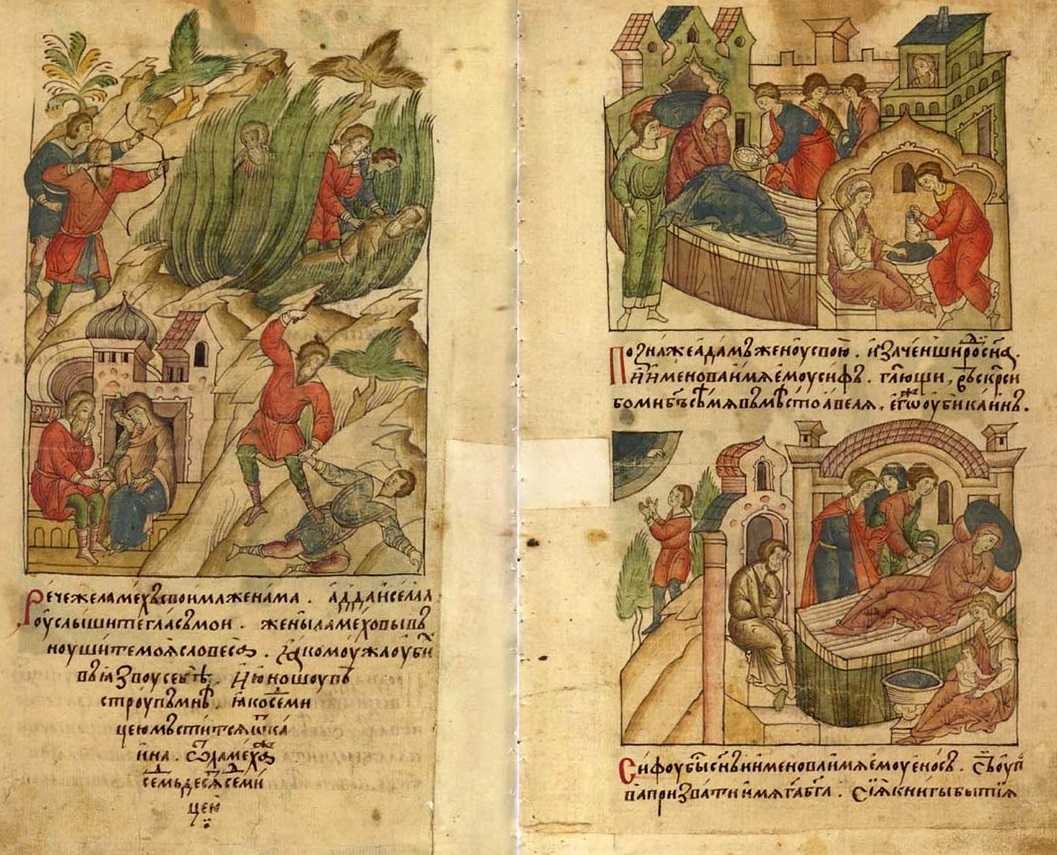 Рече же ламехъ своима женама . адда и селла
оуслышите гласъ мои . жены ламеховы въ
ноушите моя словеса . ꙗко моужа оуби
въ ꙗзвоу себѣ . и юношоу въ
строупъ мнѣ . ꙗко седми
цею мъстится ѿ ка
ина . ѿ ламеха
семьдесят седми
цею
Позна же адамъ женоу свою . и заченши роди сна .
и именова имя емоу сифъ . глющи , въскрси
бо ми бгъ сѣмя въ мѣсто авеля . егоже оуби каинъ .
Сифоу бысть снъ и именова имя емоу еносъ . съ оуп
ва призвати имя га бга . Сия книгы бытия